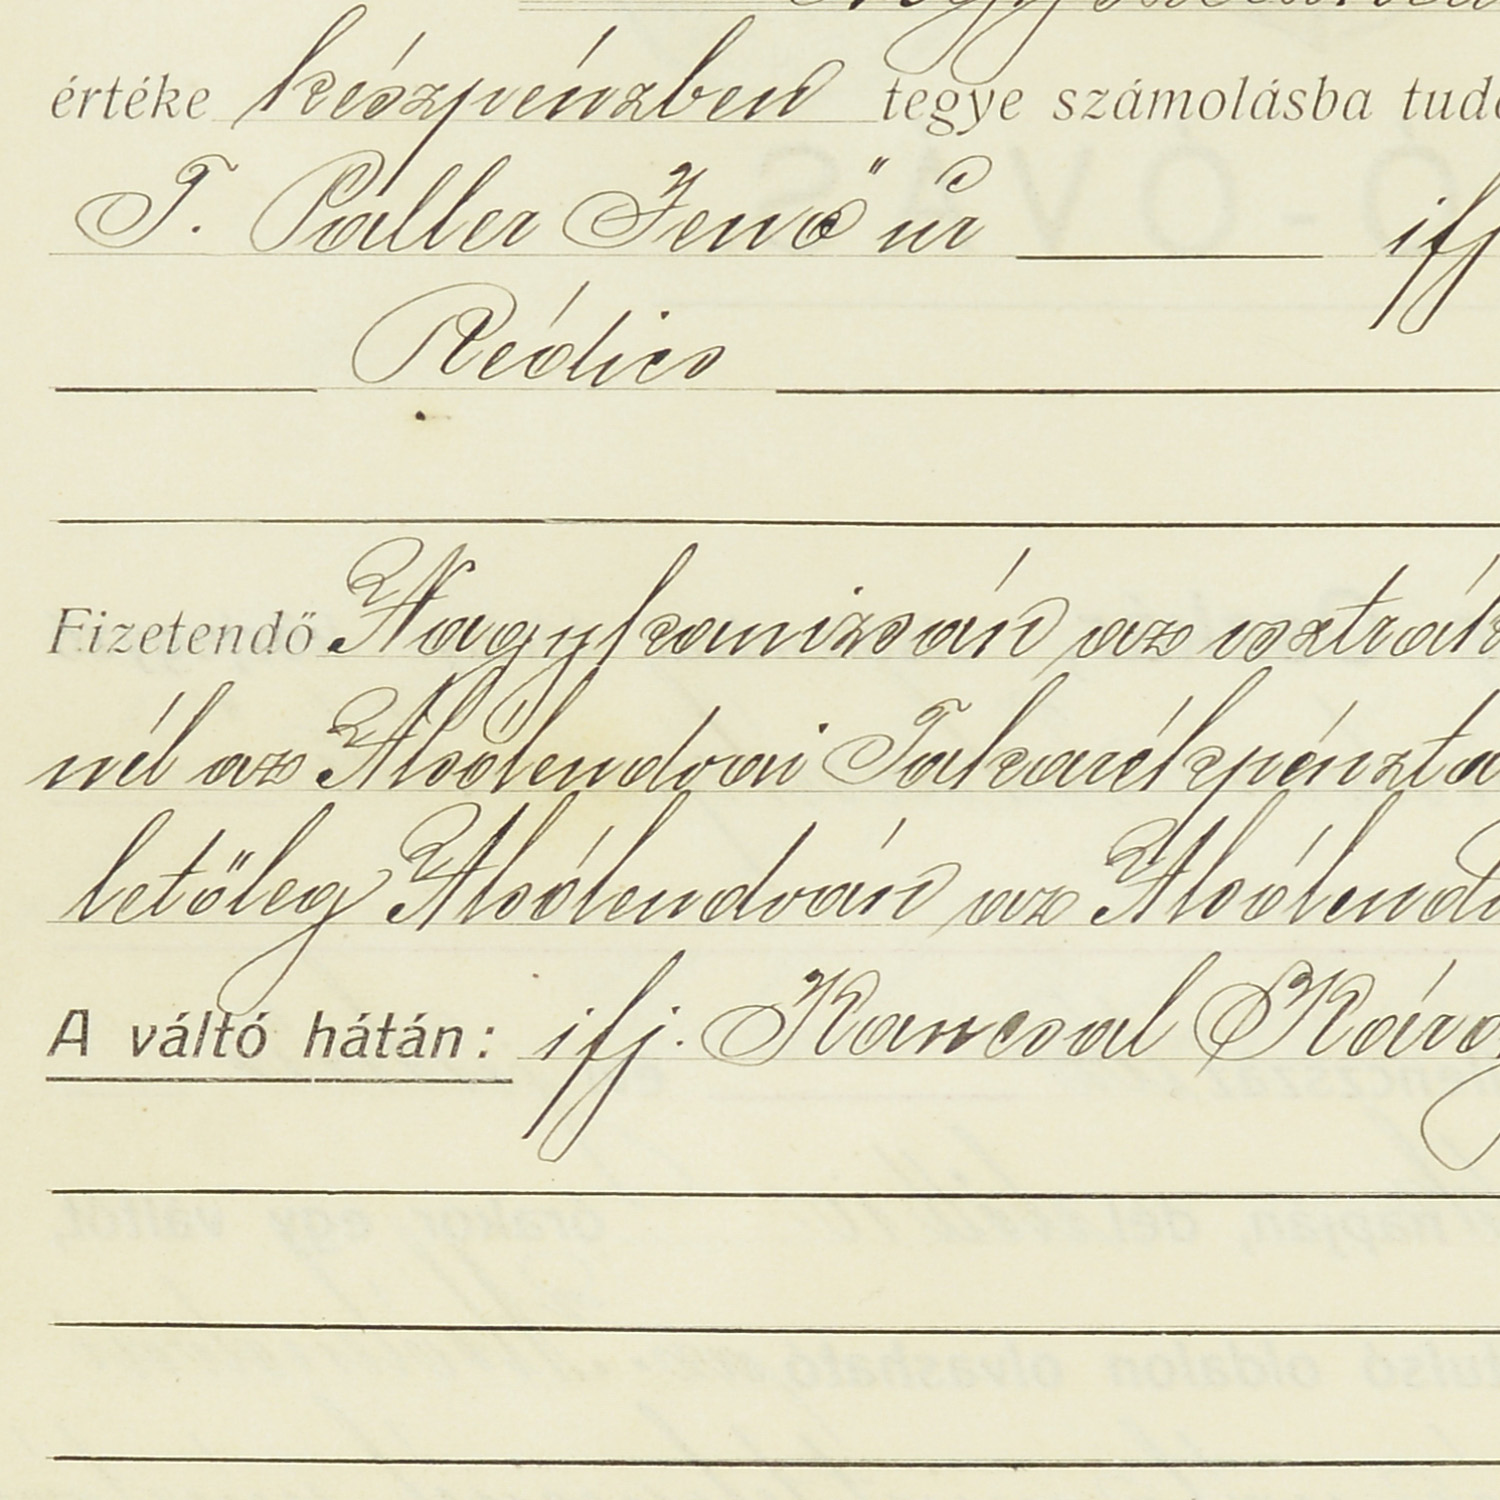 értéke készpénzben tegye számolásba
T. Páller Jenő úr ifj
Rédics
Fizetendő Nagykanizsán az osztrák
nél az Alsólendvai Takarékpénztá
letőleg Alsólendván az Alsólend
A váltó hátán: ifj. Kancsal Káro